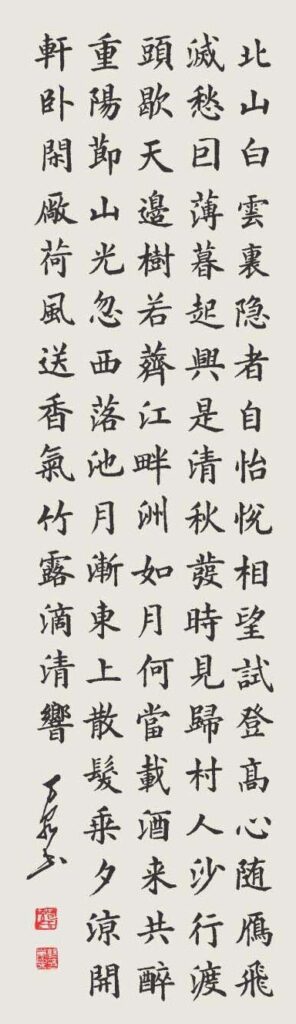 北山白雲裏隐者自怡悅相望試登高心随鴈飛
滅愁囙薄暮起興是清秋發時見歸村人沙行渡
頭歇天邊樹若薺江畔洲如月何當載酒来共醉
重陽莭山光忽西落池月漸東上散髮乗夕涼開
軒卧閑厰荷風送香氣竹露滴清響